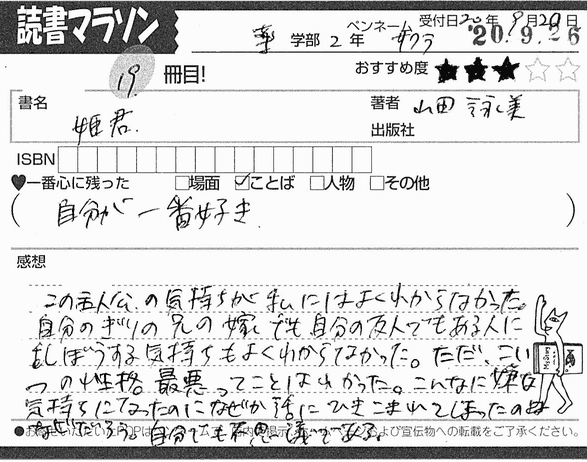 読書マラソン
受付日20年9月20日
薬 学部 2 年 ペンネーム サクラ
'20.9.26
19 冊目!
おすすめ度 ★★★☆☆
書名 姫君.
著者 山田詠美
出版社
ISBN
♥一番心に残った □場面 ☑ことば □人物 □その他
(自分が一番好き.)
感想
この主人公の気持ちが私にはよくわからなかった。
自分のぎりの兄の嫁でも自分の友人でもある人に
よくぼうする気持ちもよくわからなかった。ただ、こい
つの性格最悪ってことはわかった。こんなに嫌な
気持ちになったのになぜか話にひきこまれてしまったのは
なぜだろう。自分でも不思議である。
および宣伝物への転載をご了承ください。